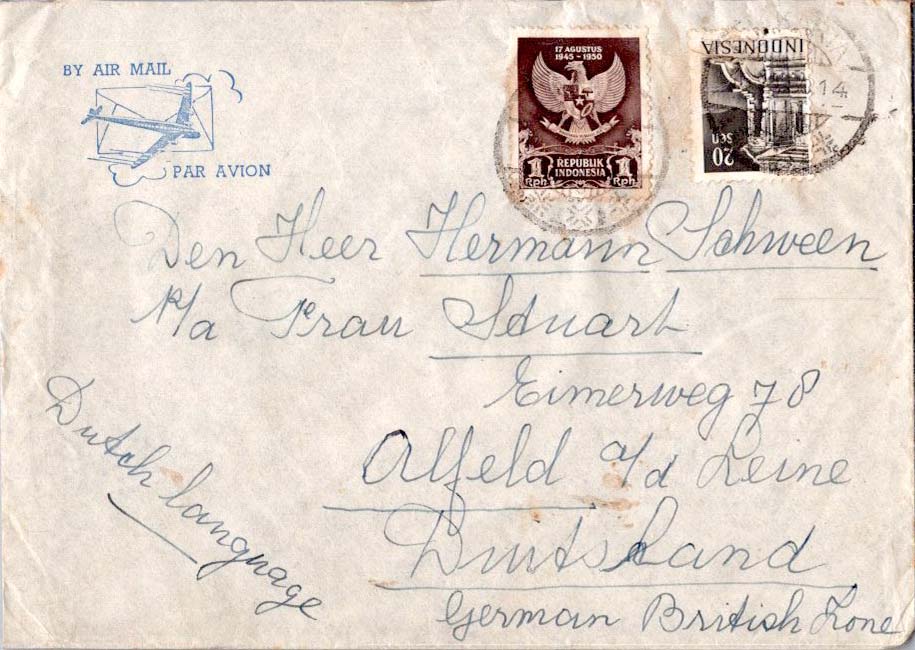 BY AIR MAIL
PAR AVION
17 AGUSTUS
1945 - 1950
1 REPUBLIK 1
Rph INDONESIA Rph
INDONESIA
20
sen
14
Den Heer Hermann Schween
p/a Frau Stuart
Eimerweg 78
Alfeld a/d Leine
Duitsland
German British Zone
Dutch language